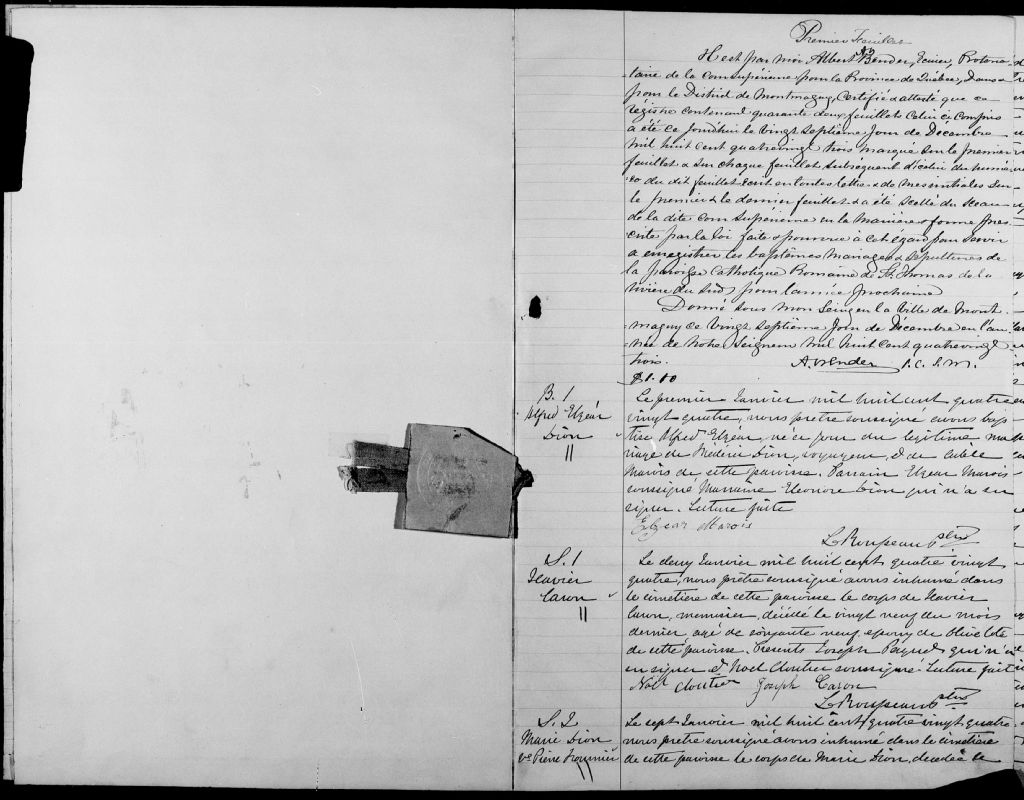 Premier Feuillet
Il est par moi Albert Bender, Ecuier, Protono
taire de la cour Supérieure pour la Province de Québec, dans &
pour le District de Montmagny, Certifié & attesté que ce
régistre contenant quarante deux feuillets Celui ci Compris
a été ce jourd'hui le vingt septième jour de Décembre
mil huit cent quatrevingt trois marqué sur le premier
feuillet & sur chaque feuillet subséquent d'icelui du numé
ro du dit feuillet écrit en toutes lettres & de mes initiales sur
le premier & le dernier feuillet & a été scellé du sceau
de la dite cour Supérieure en la manière & forme pres
crite par la loi faite & pourvue à cet égard pour servir
a enregistrer les baptêmes mariages & sépultures de
la paroisse Catholique Romaine de St. Thomas de la
rivière du Sud, pour l'année prochaine
Donné sous mon Seing en la Ville de Mont
magny ce vingt septième jour de Décembre en l'an
née de notre Seigneur mil huit cent quatrevingt
trois.
A. Bender P. C. S. M.
B. 1
Alfred Elzéar
Dion
Le premier Janvier mil huit cent quatre
vingt quatre, nous prêtre soussigné avons bap
tisé Alfred Elzéar, né ce jour du légitime ma
riage de Médéric Dion, voyageur, & de Adèle
Marois de cette paroisse. Parrain Elzear Marois
soussigné Marraine Eleonore Dion qui n'a su
signer. Lecture faite
Elzear Marois
L. Rousseau ptre
S. 1
Xavier
Caron
Le deux Janvier mil huit cent quatre vingt
quatre, nous prêtre soussigné avons inhumé dans
le cimetière de cette paroisse le corps de Xavier
Caron, menuisier, décédé le vingt neuf du mois
dernier, agé de soixante neuf, epoux de Olive Coté
de cette paroisse. Présents Joseph Paquet qui n'a
su signer & Noel Cloutier soussigné. Lecture fait
Noël Cloutier Joseph Caron
L. Rousseau ptre
S. 2
Marie Dion
Ve Pierre Fournier
Le sept Janvier mil huit cent quatre vingt quatre
nous prêtre soussigné avons inhumé dans le cimetière
de cette paroisse le corps de Marie Dion, décédée le